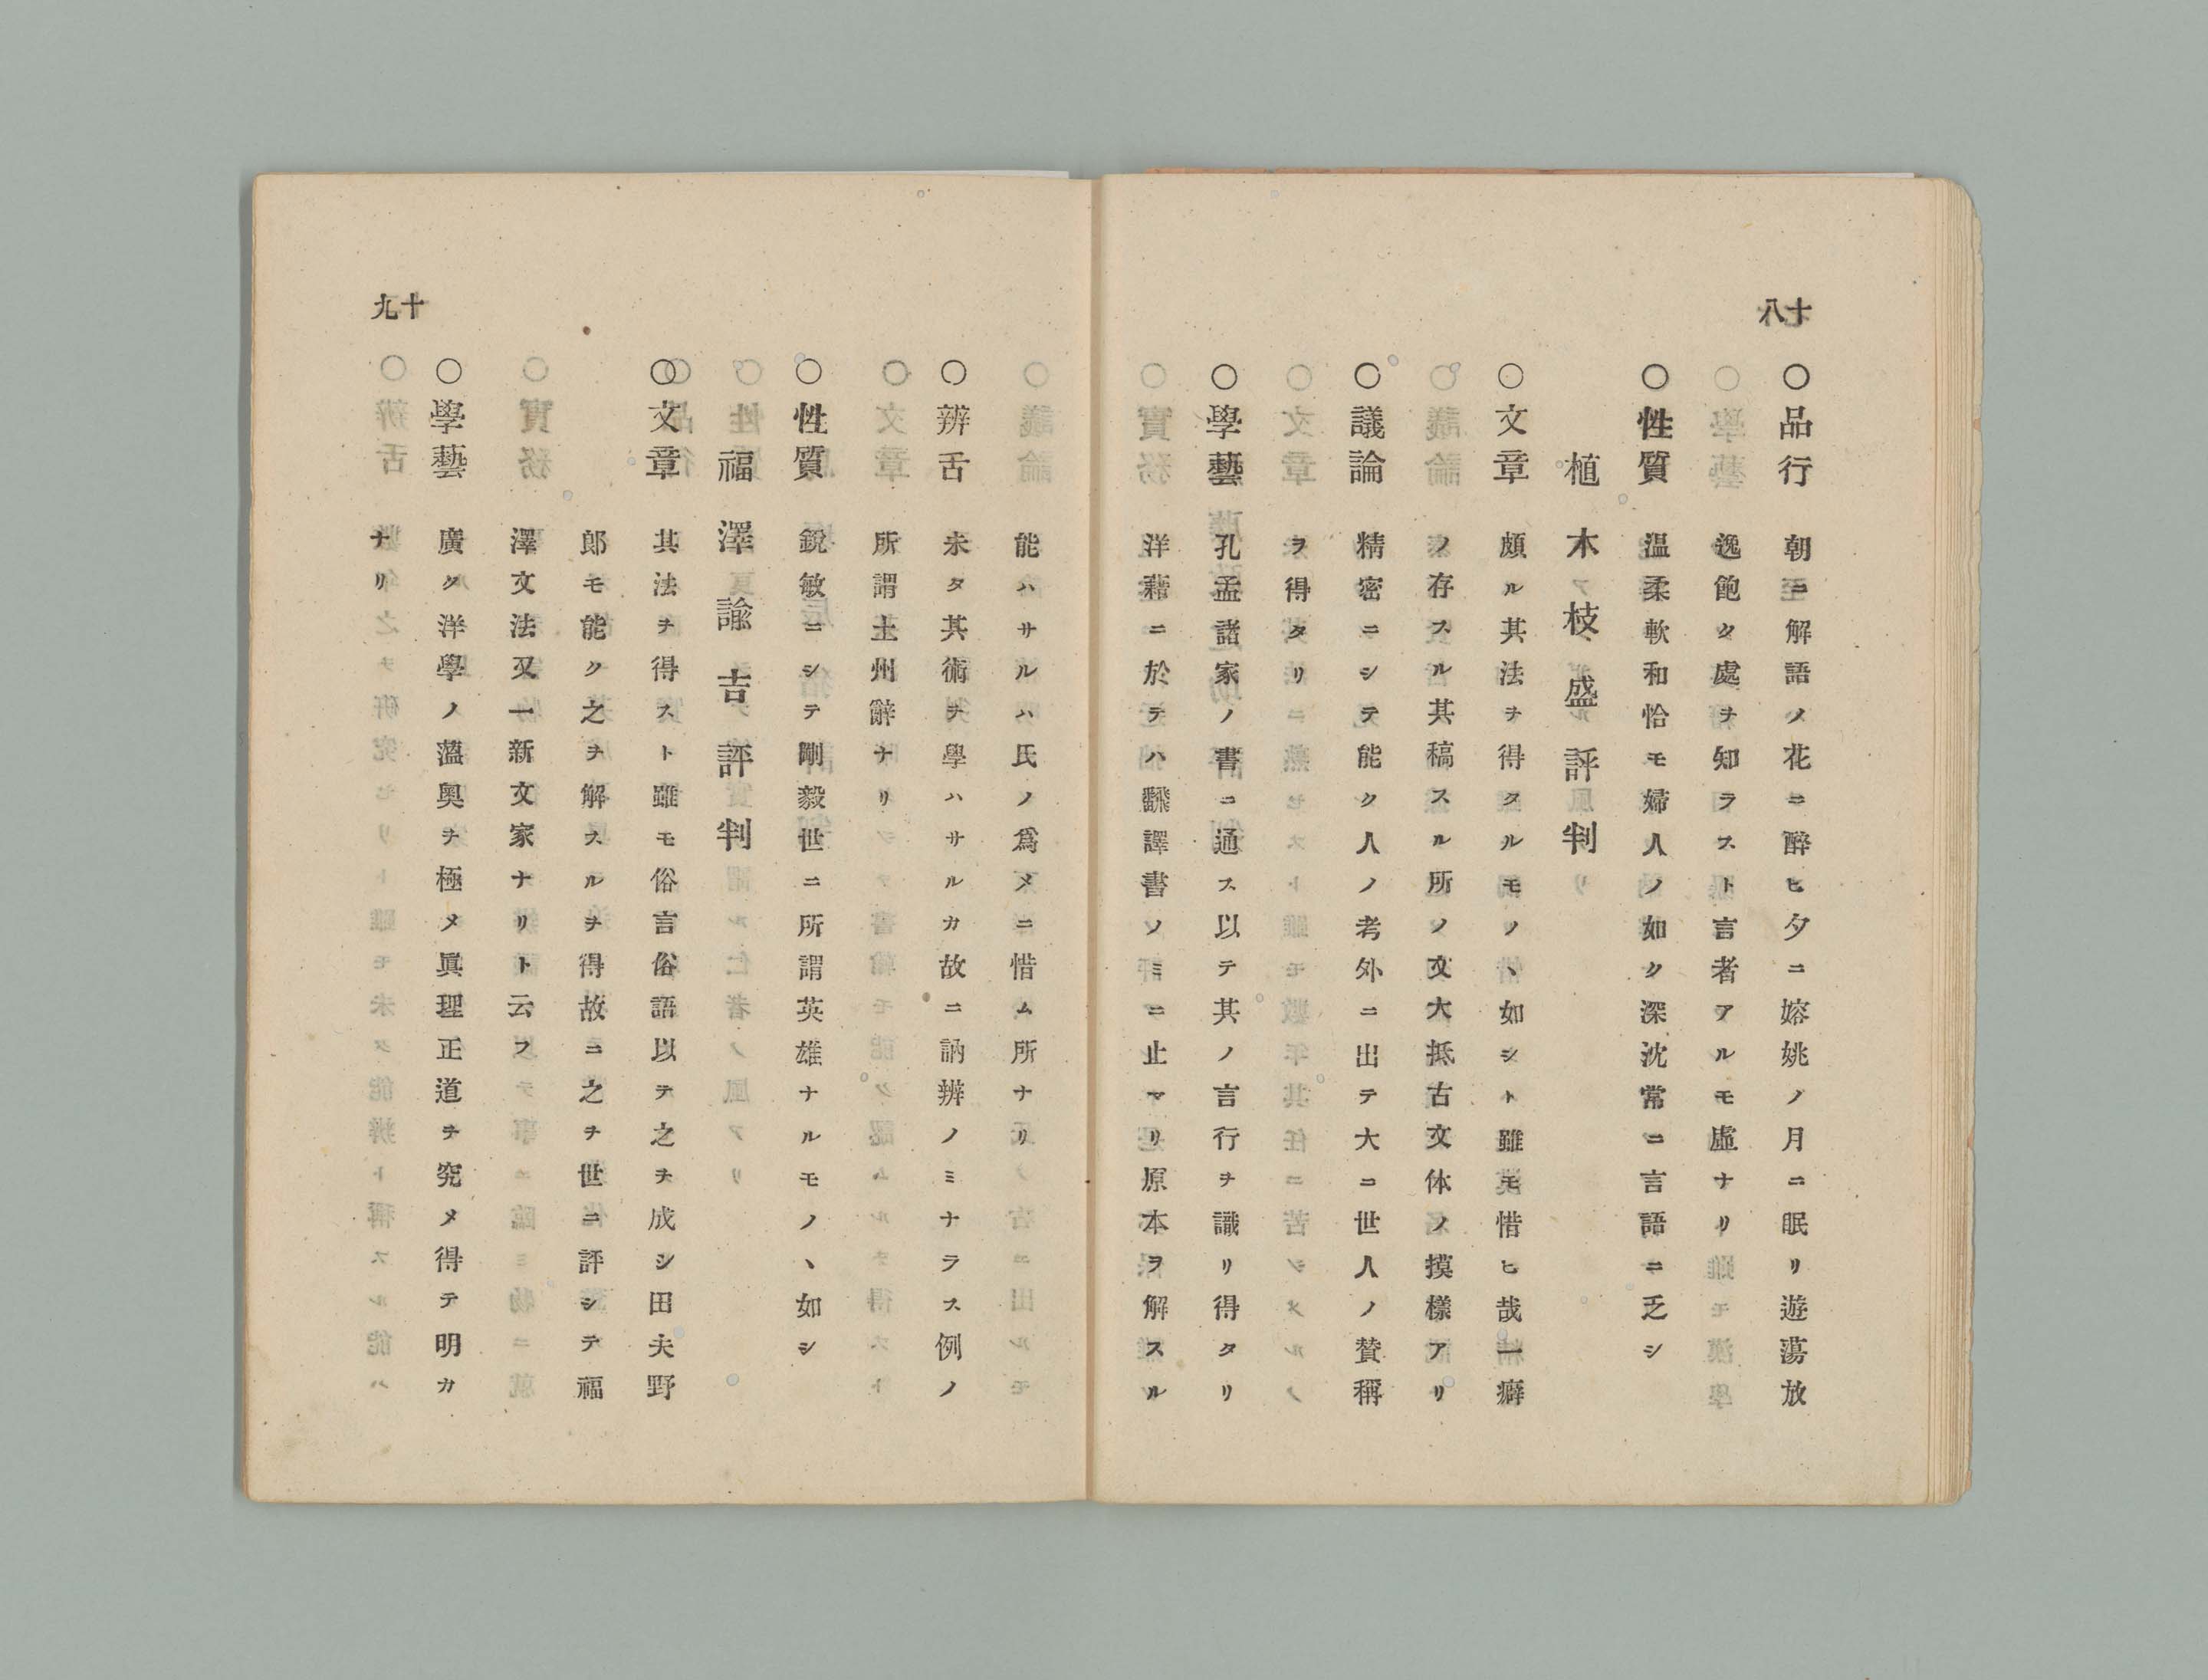 十八
○品行 朝ニ解語ノ花ニ醉ヒ夕ニ嫆姚ノ月ニ眠リ遊蕩放
逸飽ク處ヲ知ラスト言者アルモ虛ナリ
○性質 溫柔軟和恰モ婦人ノ如ク深沈常ニ言語ニ乏シ
植木枝盛評判
○文章 頗ル其法ヲ得タルモノヽ如シト雖モ惜ヒ哉一癖
ノ存スル其稿スル所ノ文大抵古文体ノ摸樣アリ
○議論 精密ニシテ能ク人ノ考外ニ出テ大ニ世人ノ賛稱
ヲ得タリ
○學藝 孔孟諸家ノ書ニ通ス以テ其ノ言行ヲ識リ得タリ
洋藉ニ於テハ飜譯書ノミニ止マリ原本ヲ解スル
十九
能ハサルハ氏ノ爲メニ惜ム所ナリ
○辨舌 未タ其術ヲ學ハサルカ故ニ訥辨ノミナラス例ノ
所謂土州辭ナリ
○性質 鋭敏ニシテ剛毅世ニ所謂英雄ナルモノヽ如シ
福澤諭吉評判
○文章 其法ヲ得スト雖モ俗言俗語以テ之ヲ成シ田夫野
郎モ能ク之ヲ解スルヲ得故ニ之ヲ世ニ評シテ福
澤文法又一新文家ナリト云フ
○學藝 廣ク洋學ノ薀奧ヲ極メ眞理正道ヲ究メ得テ明カ
ナリ